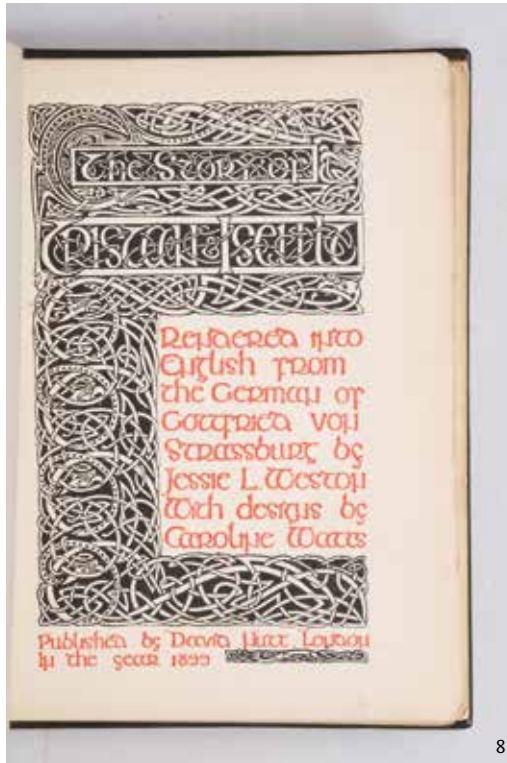 The Story of
Tristan & Iseult
Rendered into
English from
the German of
Gottfried von
Strassburg by
Jessie L. Weston
With designs by
Caroline Watts
Published by David Nutt London
In the year 1899
8